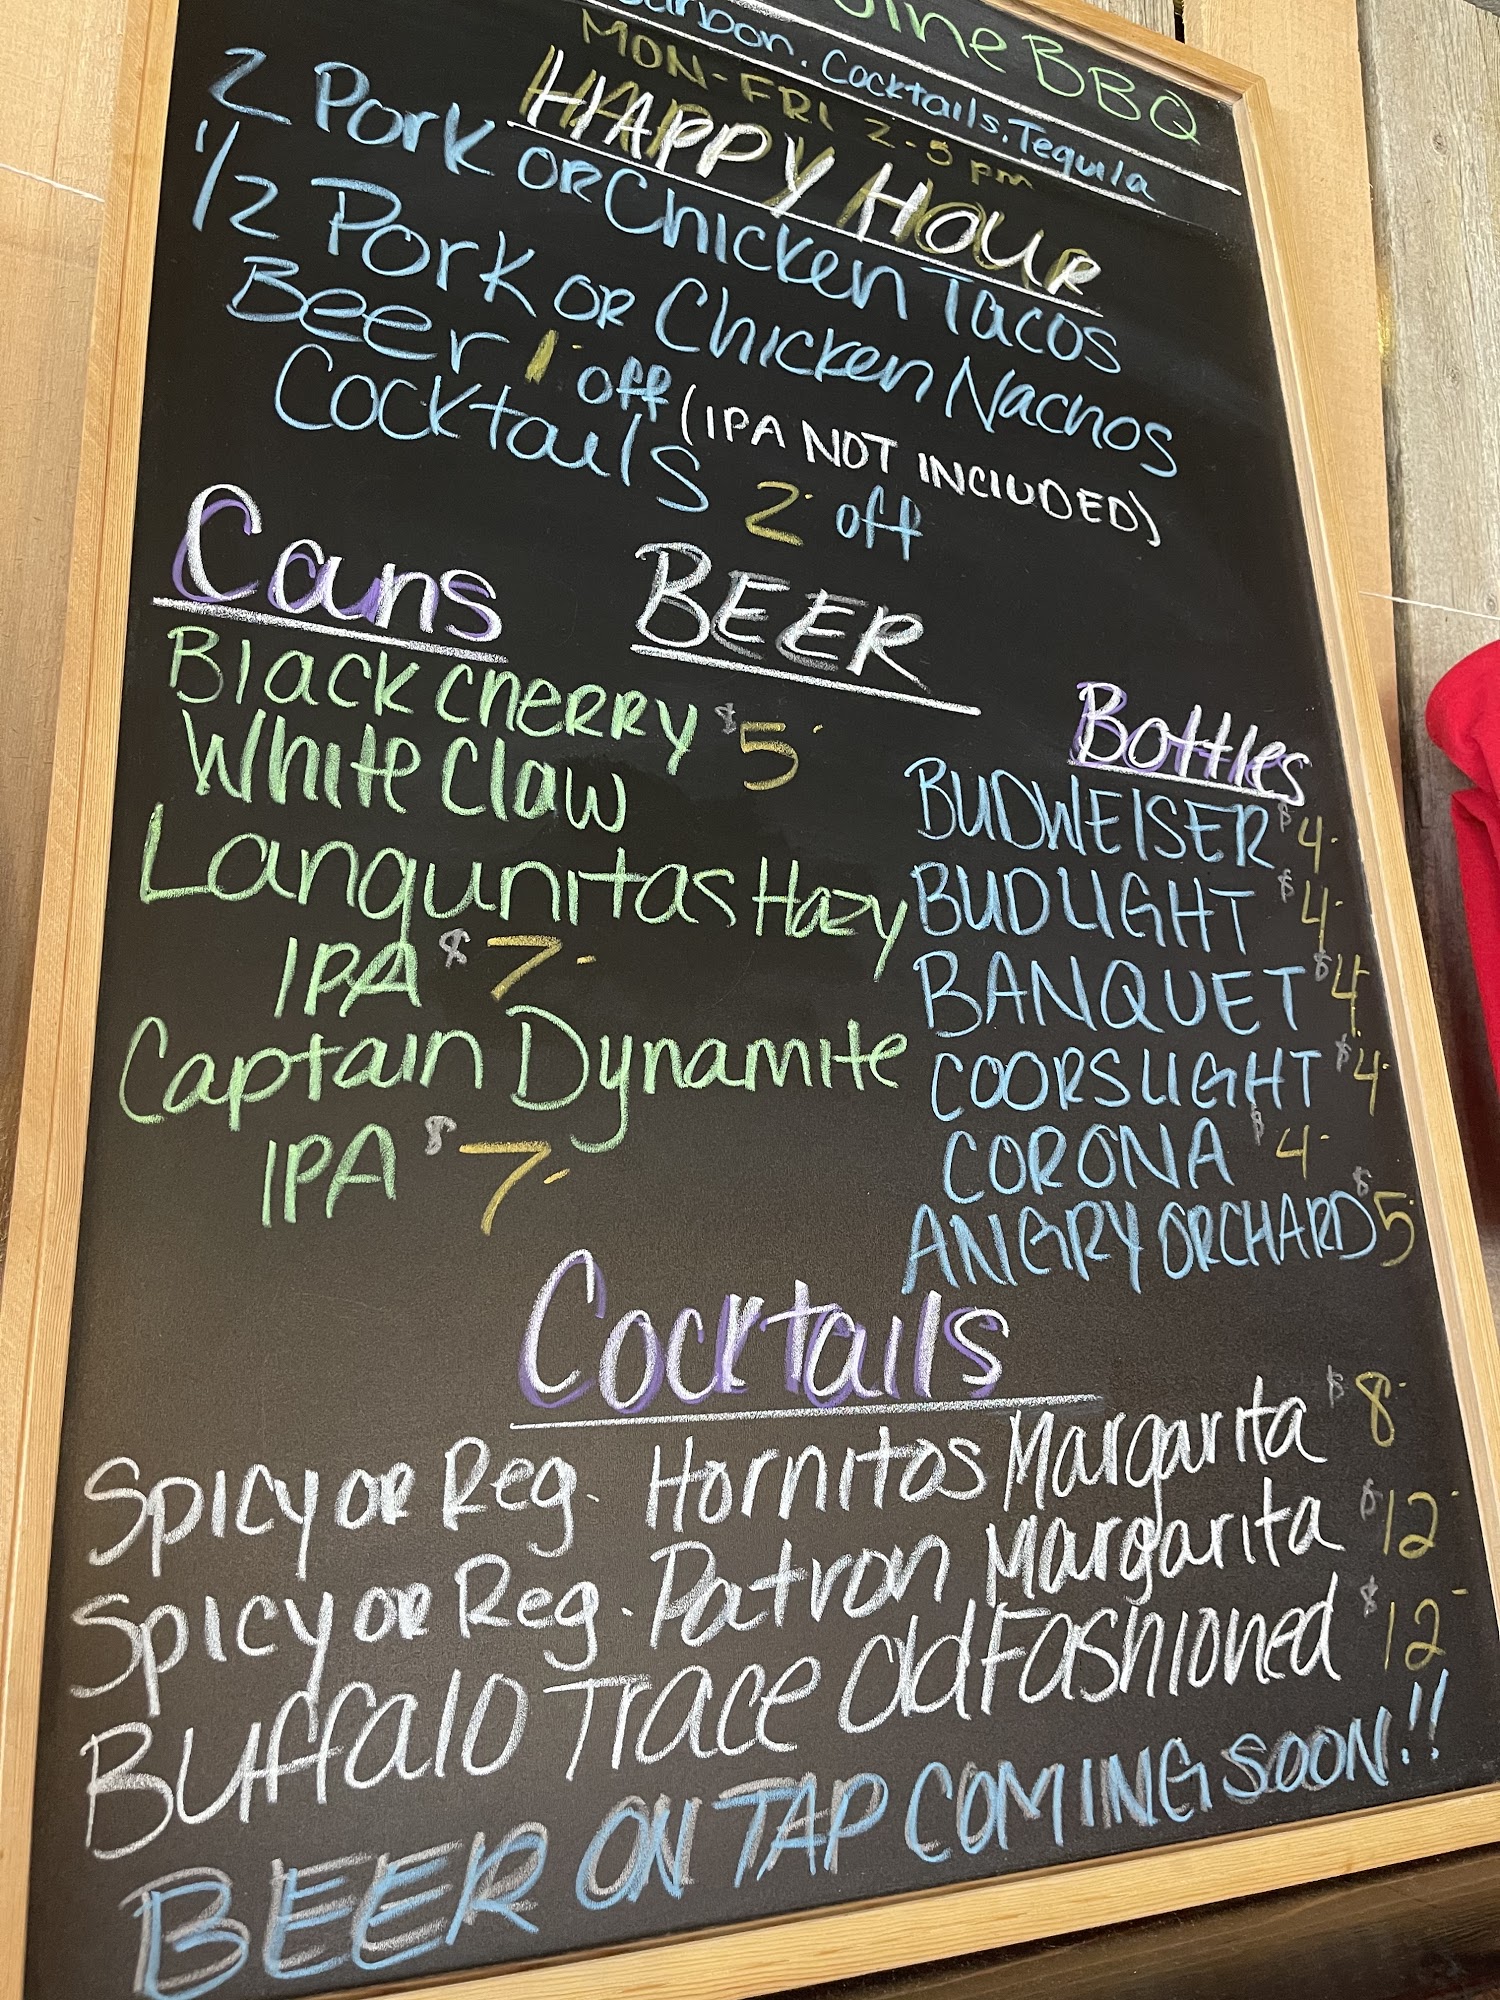 BBQ
Cocktails. Tequila
MON-FRI 2-5 pm
HAPPY HOUR
2 Pork OR Chicken Tacos
1/2 Pork OR Chicken Nachos
Beer 1 off (IPA NOT INCIUDED)
Cocktails 2 off
Cans
BEER
Black CHERRY $5
White Claw
Langunitas Hazy
IPA $7
Captain Dynamite
IPA $7
Bottles
BUDWEISER $4
BUDLIGHT $4
BANQUET $4
COORSLIGHT $4
CORONA $4
ANGRY ORCHARD $5
Cocktails
Spicy OR Reg. Hornitos Margarita $8
Spicy OR Reg. Patron Margarita $12
Buffalo Trace Old Fashioned $12
BEER ON TAP COMING SOON!!